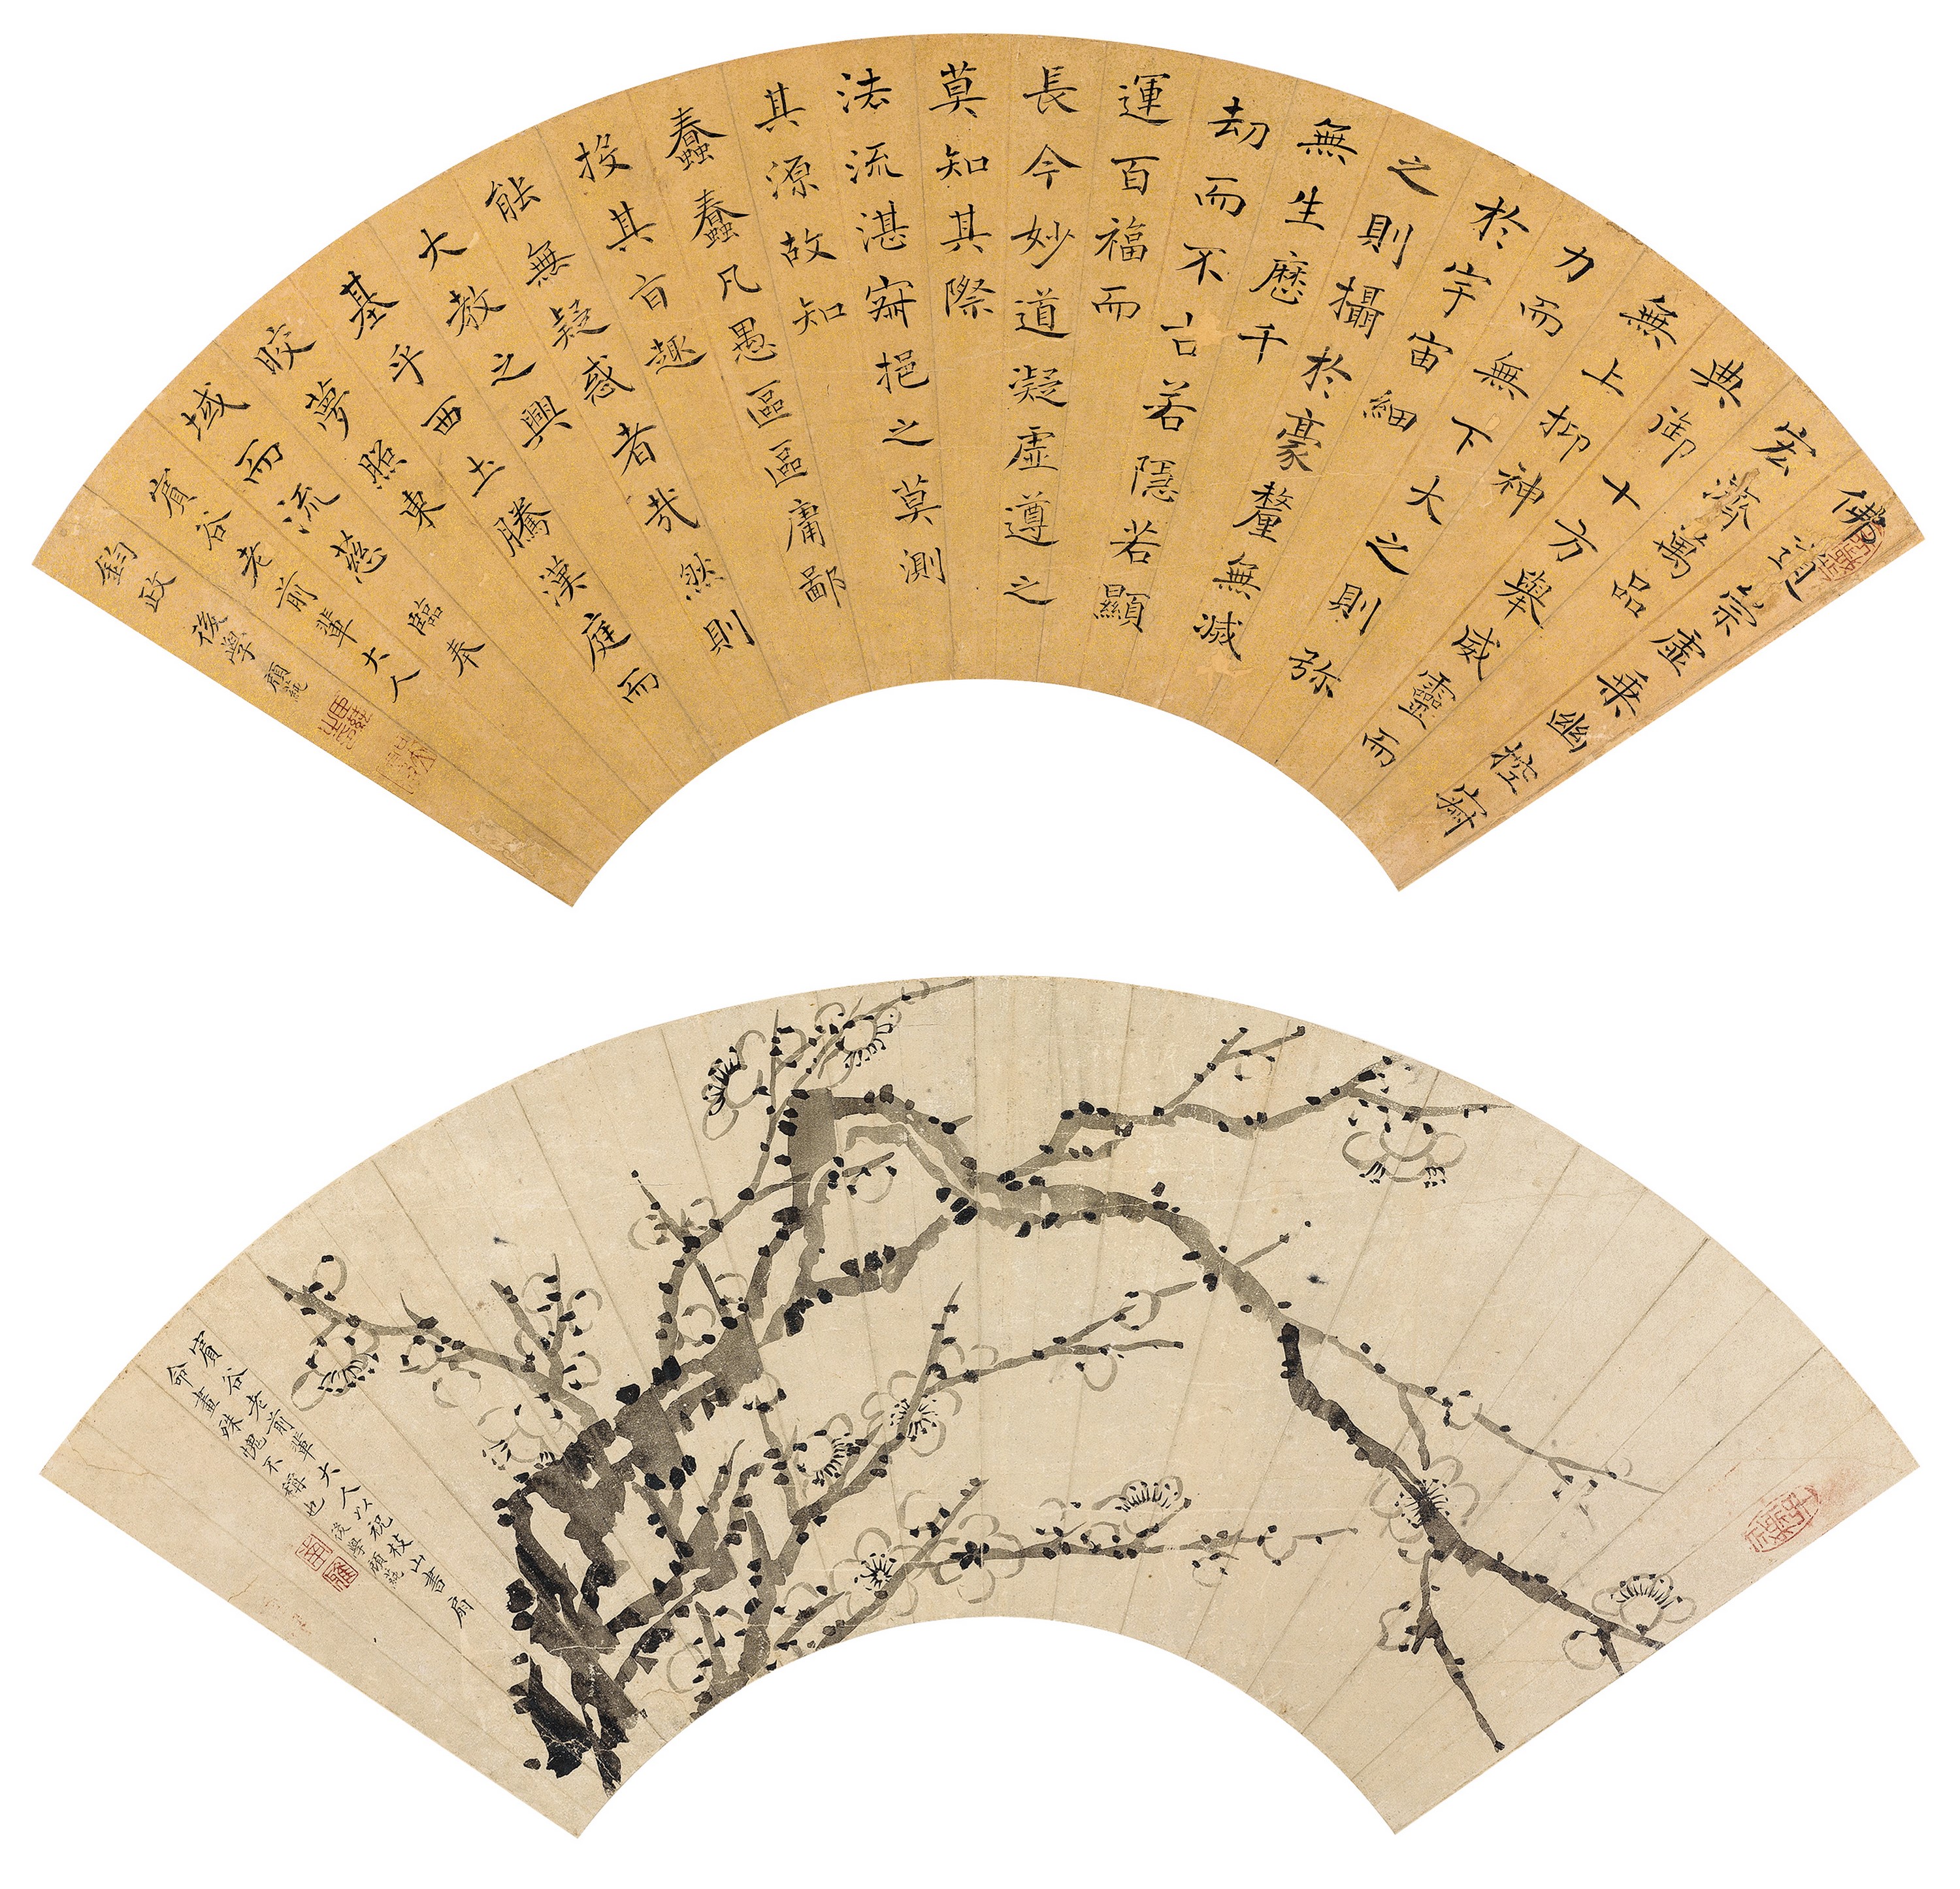 佛道崇虛乘幽控寂
宏濟萬品
典御十方舉威靈而
無上抑神
力而無下大之則弥
於宇宙細
之則攝於豪釐無滅
無生歷千
劫而不古若隱若顯
運百福而
長今妙道凝虛遵之
莫知其際
法流湛寂挹之莫測
其源故知
蠢蠢凡愚區區庸鄙
投其旨趣
能無疑惑者哉然則
大教之興
基乎西土騰漢庭而
晈夢照東
域而流慈 臨奉
賓谷老前輩大人
鈞政 後學顧蒓
賓谷老前輩大人以祝枝山書扇
命畫殊愧不稱也 後學顧蒓
南雅